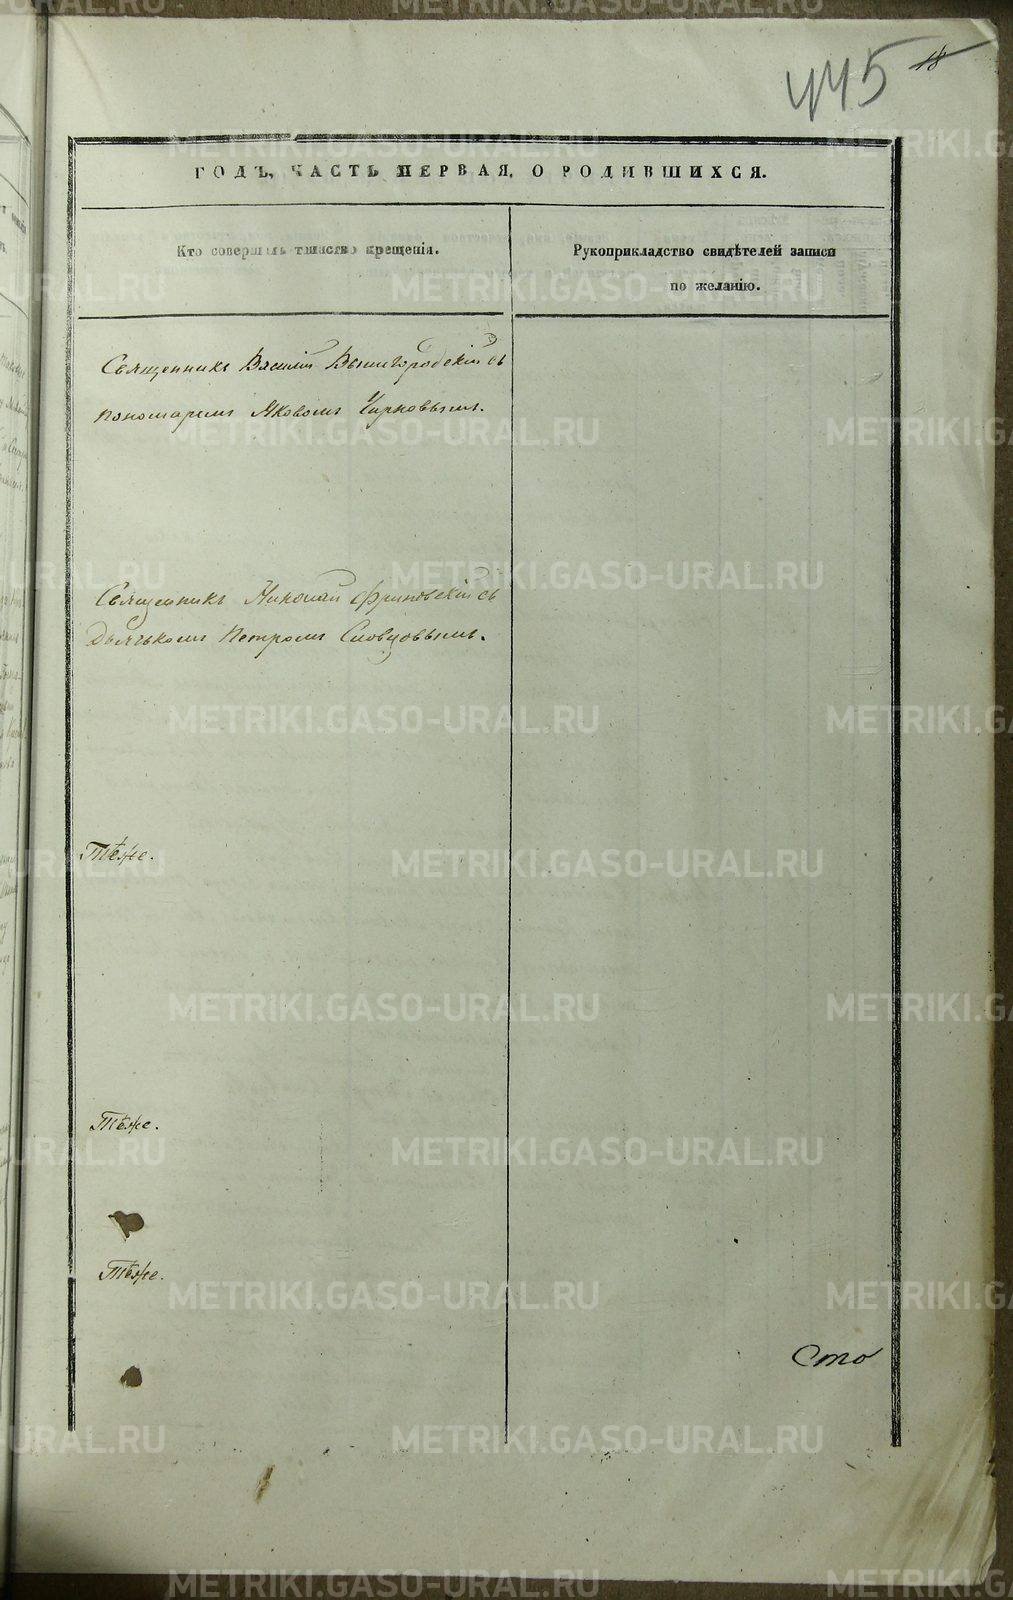 445 18
ГОДЪ, ЧАСТЬ ПЕРВАЯ, О РОДИВШИХСЯ.
Кто совершалъ таинство крещенія.
Рукоприкладство свидѣтелей записи
по желанію.
Священникъ Василій Вышгородскій съ
пономаремъ Яковомъ Чирковымъ.
Священникъ Николай Фриновскій съ
Дьячькомъ Петромъ Словцовымъ.
Тѣже.
Тѣже.
Тѣже.
Сто
METRIKI.GASO-URAL.RU